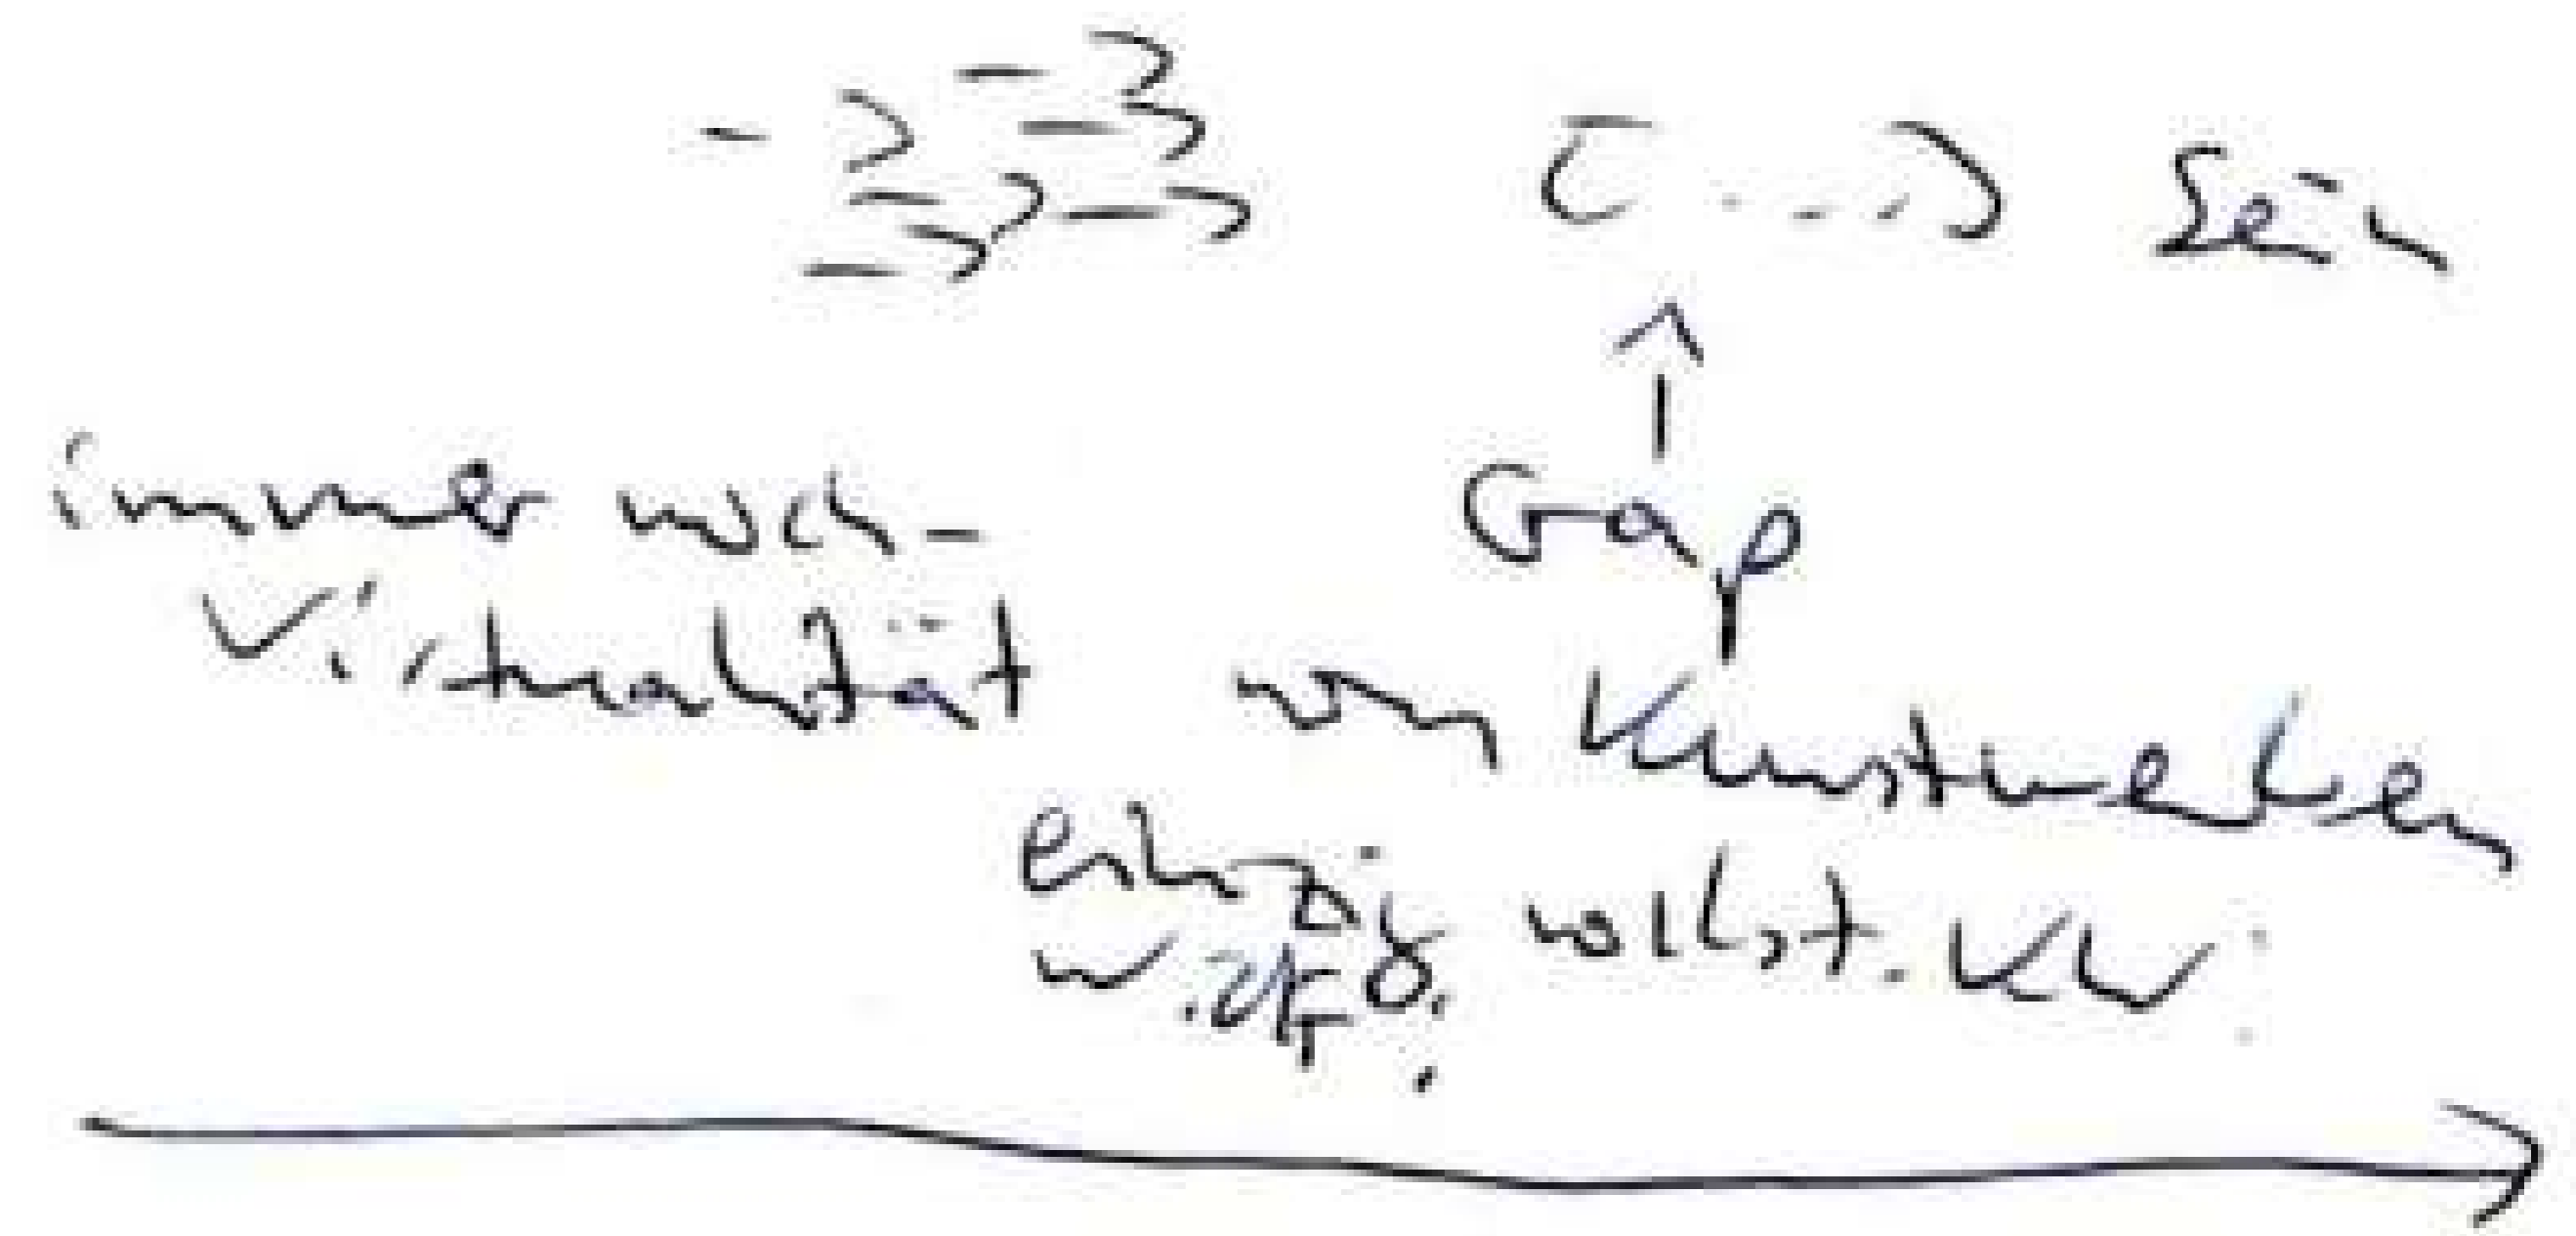 (...) Sein
Gap
immer noch-
Virtualität
von Kunstwerken
einzig vollst. KW